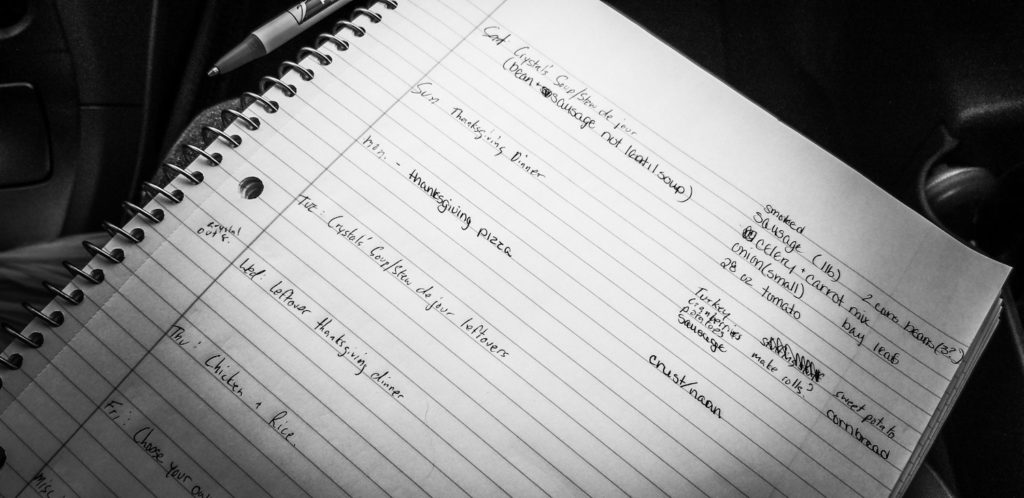 Sat Crystals' Soup/Stew de jour
(bean + sausage not lentil soup)
Sun Thanksgiving Dinner
Mon. - thanksgiving pizza
crystal
out
Tue: Crystals' Soup/Stew de jour leftovers
Wed: leftover thanksgiving dinner
Thu: Chicken + Rice
Fri: Choose your
Misc
smoked
sausage (1lb) 2 cans beans
celery + carrot mix bay leab
onion (small)
28 oz tomato
Turkey
cranberries sweet potato
potatoes make rolls? cornbread
sausage
crust/naan